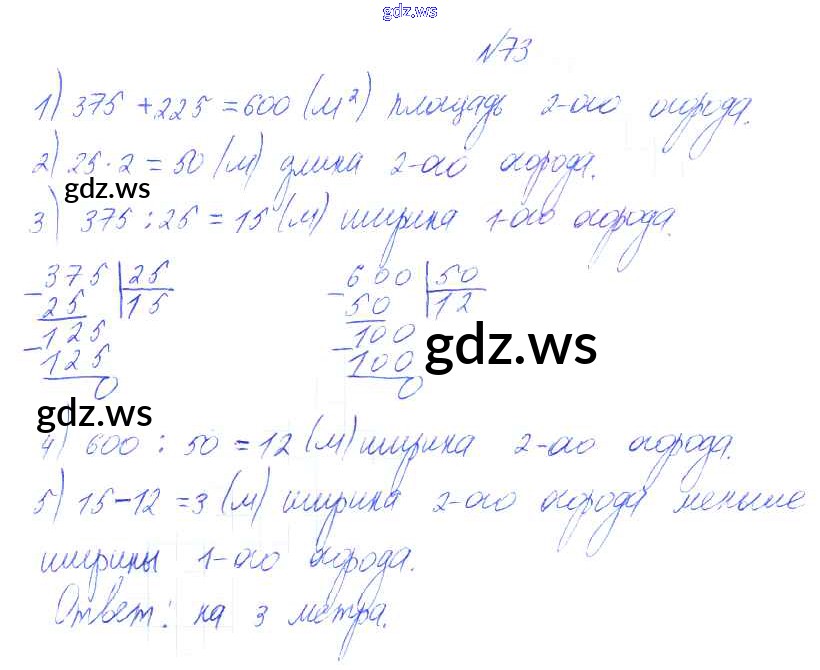 gdz.ws
№73
1) 375 + 225 = 600 (м²) площадь 2-ого огорода.
2) 25 · 2 = 50 (м) длина 2-ого огорода.
gdz.ws
3) 375 : 25 = 15 (м) ширина 1-ого огорода.
375 | 25 600 | 50
25 15 50 12
125 100
125 100
0 0
gdz.ws
gdz.ws
4) 600 : 50 = 12 (м) ширина 2-ого огорода.
5) 15 - 12 = 3 (м) ширина 2-ого огорода меньше
ширины 1-ого огорода.
Ответ: на 3 метра.